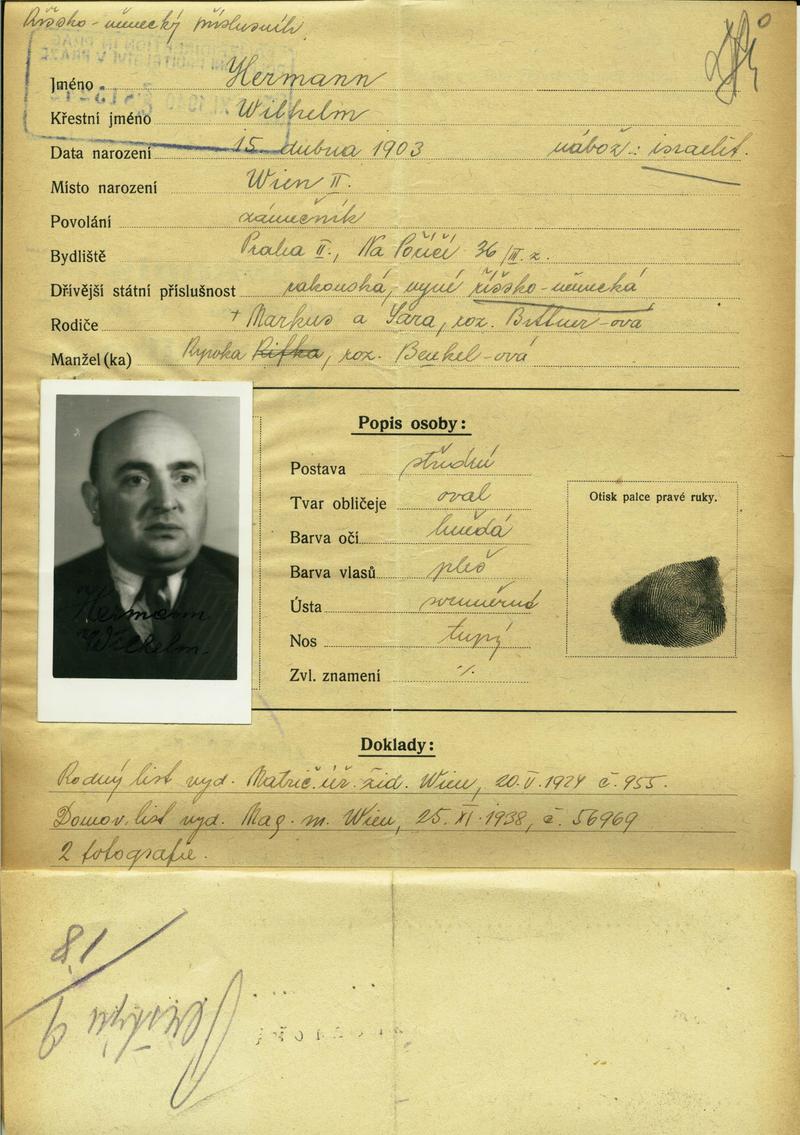 Říšsko-německý příslušník.
Jméno Hermann
Křestní jméno Wilhelm
Data narození 15. dubna 1903 nábož.: israelit.
Místo narození Wien II.
Povolání zámečník
Bydliště Praha II., Na Poříčí 36/III. z.
Dřívější státní příslušnost rakouská, nyní říšsko-německá
Rodiče + Markus a Sara, roz. Bittner-ová
Manžel(ka) Ryvka Rifka, roz. Benkel-ová
Popis osoby:
Postava střední
Tvar obličeje oval
Barva očí hnědá
Barva vlasů pleš
Ústa souměrná
Nos tupý
Zvl. znamení ·/.
Otisk palce pravé ruky.
Hermann
Wilhelm.
Doklady:
Rodný list vyd. Matrič. úř. žid. Wien, 20.V.1924 č. 955.
Domov. list vyd. Mag. m. Wien, 25.XI.1938, č. 56969
2 fotografie.